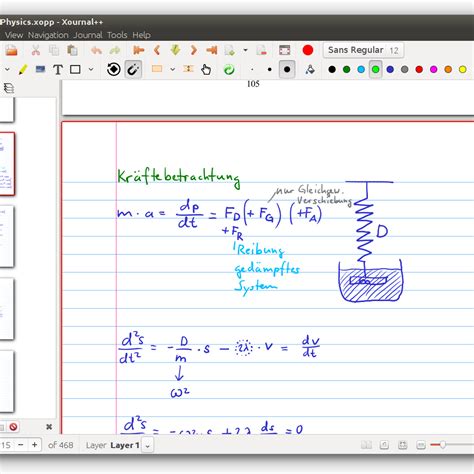 Physics.xopp - Xournal++
View Navigation Journal Tools Help
Sans Regular 12
105
Kräftebetrachtung
nur Gleichgew.
Verschiebung
m · a = dp/dt = F_D (+ F_G) (+F_A)
+ F_R
Reibung
gedämpftes
System
D
d²s/dt² = - D/m · s - 2λ · v = dv/dt
↓
ω²
d²s = -ω² s + 2λ ds = 0
15 of 468 Layer Layer 1